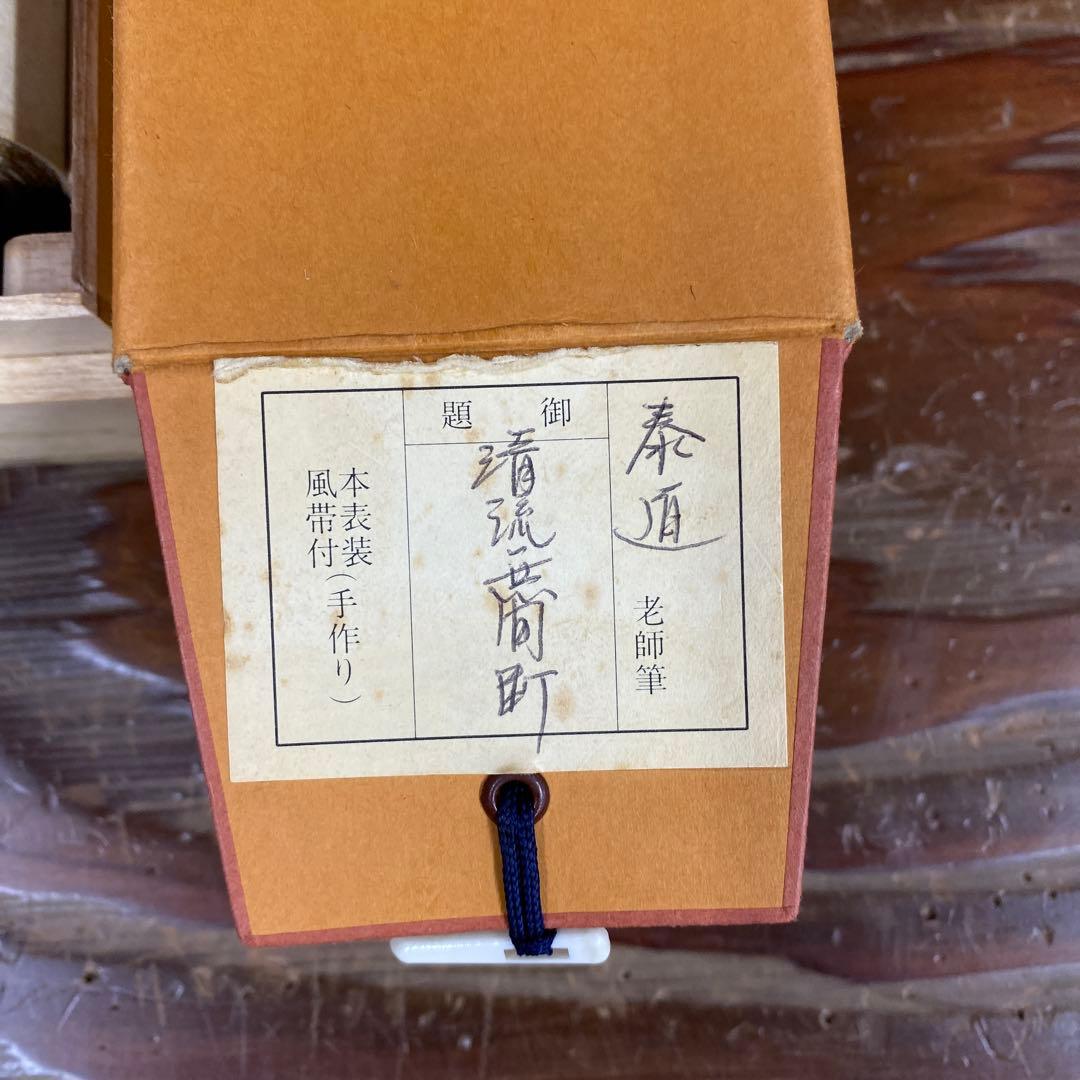 泰道 老師筆
御題
清流無間断
本表装
風帯付(手作り)